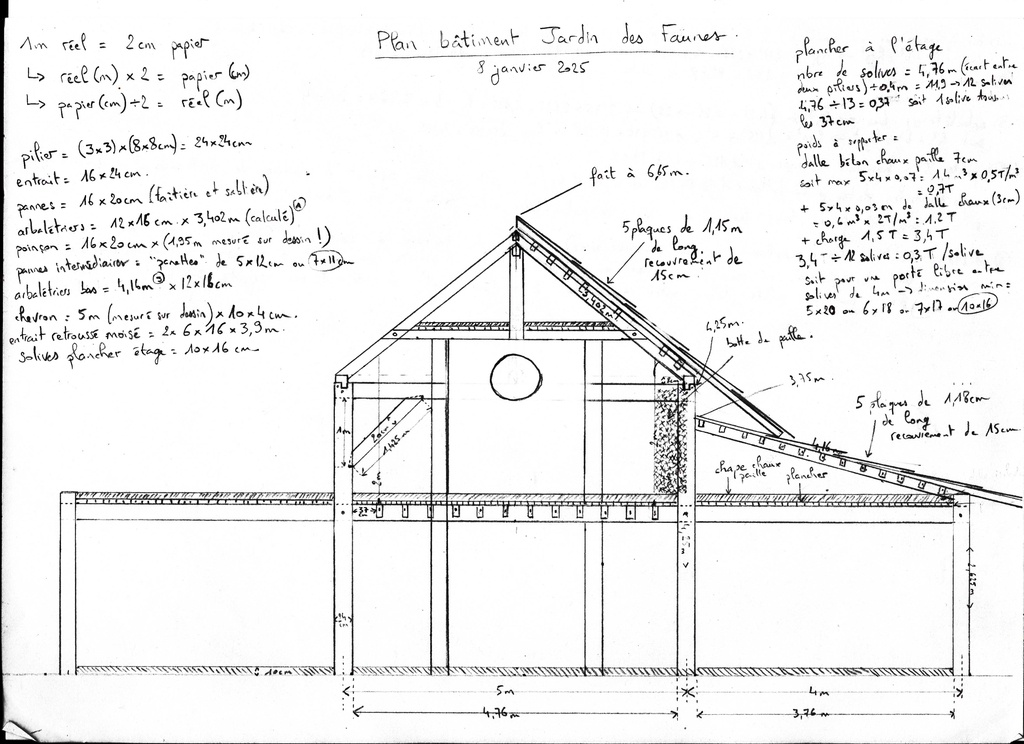 Plan bâtiment Jardin des Faunes.
8 janvier 2025
1m réel = 2cm papier
↳ réel (m) × 2 = papier (cm)
↳ papier (cm) ÷ 2 = réel (m)
pilier = (3×3)×(8×8cm) = 24×24cm
entrait = 16×24cm.
pannes = 16×20cm (faitière et sablière)
arbalétriers = 12×16cm. × 3,402m (calculé)
poinçon = 16×20cm × (1,95m mesuré sur dessin !)
pannes intermédiaires = "pénettes" de 5×12cm ou 7×11cm
arbalétriers bas = 4,16m × 12×16cm
chevron = 5m (mesuré sur dessin) × 10×4cm.
entrait retroussé moisé = 2× 6×16×3,9m.
solives plancher étage = 10×16cm
plancher à l'étage
nbre de solives = 4,76m (écart entre
deux piliers) ÷ 0,4m = 11,9 → 12 solives
4,76 ÷ 13 = 0,37 soit 1 solive tous
les 37cm
poids à supporter =
dalle béton chaux paille 7cm
soit max 5×4×0,07 = 1.4 m³ × 0,5T/m³
= 0,7T
+ 5×4×0,03 m de dalle chaux (3cm)
= 0,6m³ × 2T/m³ = 1.2T
+ charge 1,5T = 3,4T
3,4T ÷ 12 solives = 0,3T/solive
soit pour une porté libre entre
solives de 4m → dimension min =
5×20 ou 6×18 ou 7×17 ou 10×16
fait à 6,65m.
5 plaques de 1,15m
de long
recouvrement de
15cm.
3,402m
4,25m.
botte de paille.
3,75m.
5 plaques de 1,18cm
de long
recouvrement de 15cm.
4,16m
chape chaux
paille
plancher
1m
20cm
1,425m
37
24
cm
2,625m
10cm
5m
4m
4,76m
3,76m